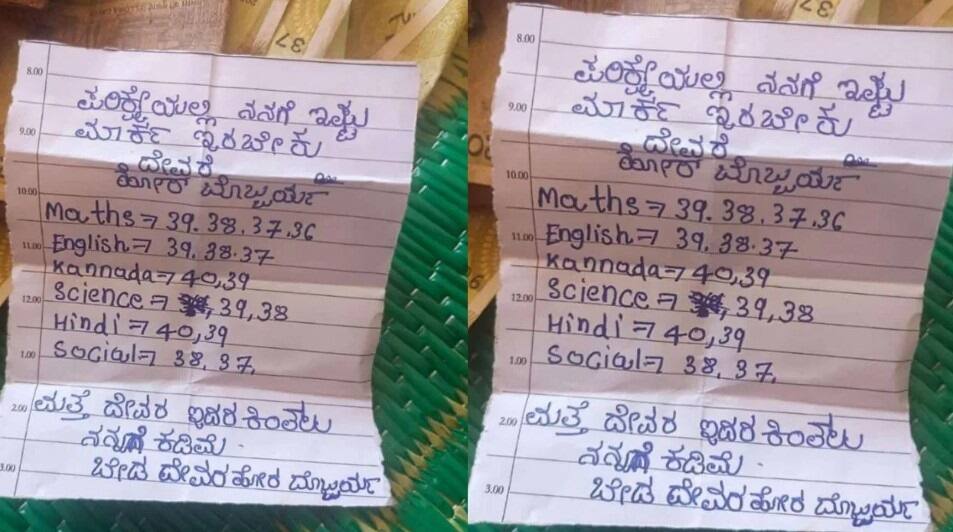 8.00
ಪರಿಕ್ಷೇಯಲ್ಲಿ ನನಗೆ ಇಷ್ಟು
9.00
ಮಾರ್ಕ್ ಇರಬೇಕು
ದೇವರೆ
10.00
Maths = 39.38.37.36
11.00
English = 39.38.37
Kannada = 40,39
12.00
Science = 39,38
Hindi = 40,39
1.00
Social = 38.37.
2.00
ಮತ್ತೆ ದೇವರ ಇದರ ಕಿಂತಲು
ನನ್ನಗೆ ಕಡಿಮೆ.
3.00
ಬೇಡ ದೇವರ ಹೋರ
8.00
ಪರಿಕ್ಷೇಯಲ್ಲಿ ನನಗೆ ಇಷ್ಟು
9.00
ಮಾರ್ಕ್ ಇರಬೇಕು
ದೇವರೆ
10.00
Maths = 39.38.37.36
11.00
English = 39.38.37
Kannada = 40,39
12.00
Science = 39,38
Hindi = 40,39
1.00
Social = 38.37.
2.00
ಮತ್ತೆ ದೇವರ ಇದರ ಕಿಂತಲು
ನನ್ನಗೆ ಕಡಿಮೆ.
3.00
ಬೇಡ ದೇವರ ಹೋರ